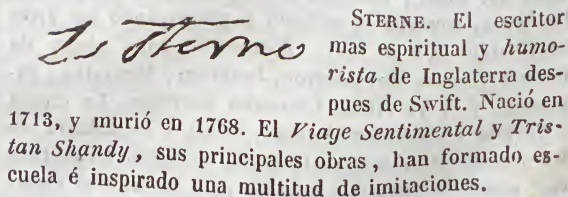 L. Sterne
STERNE. El escritor
mas espiritual y humo-
rista de Inglaterra des-
pues de Swift. Nació en
1713, y murió en 1768. El Viage Sentimental y Tris-
tan Shandy, sus principales obras, han formado es-
cuela é inspirado una multitud de imitaciones.